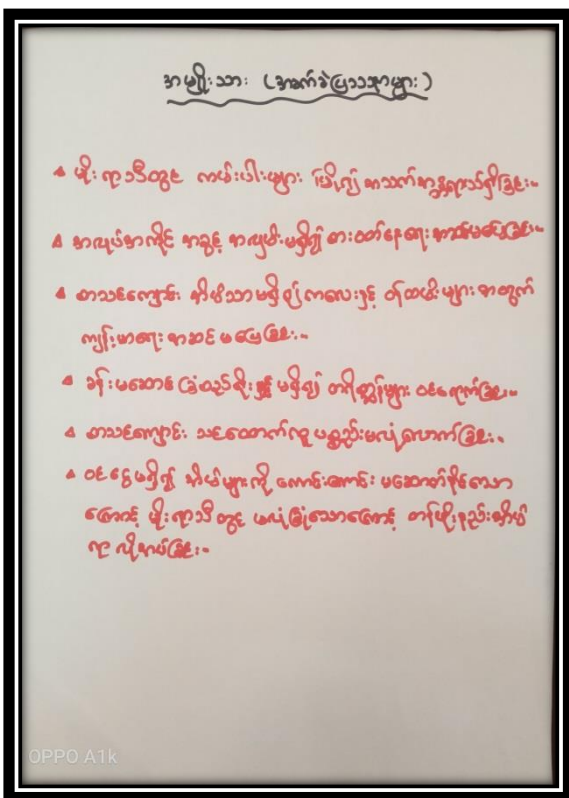 အမျိုးသား (အခက်ခဲပြဿနာများ)
▲ မိုးရာသီတွင် ကမ်းပါးများ ပြို၍ အသက်အန္တရာယ်ရှိခြင်း။
▲ အလုပ်အကိုင် အခွင့် အလမ်းမရှိ၍ စားဝတ်နေရေး အဆင်မပြေခြင်း။
▲ စာသင်ကျောင်း အိမ်သာမရှိ၍ ကလေးနှင့် ဝန်ထမ်းများ အတွက်
ကျန်းမာရေး အဆင် မပြေခြင်း။
▲ ခန်းမဆောင် ခြံစည်းရိုး မရှိ၍ တိရိစ္ဆာန်များ ဝင်ရောက်ခြင်း။
▲ စာသင်ကျောင်း သင်ထောက်ကူ ပစ္စည်းမလုံလောက်ခြင်း။
▲ ဝင်ငွေမရှိ၍ အိမ်များကို ကောင်းကောင်း မဆောက်နိုင်သော
ကြောင့် မိုးရာသီတွင် မလုံခြုံသောကြောင့် တန်ဖိုးနည်းအိမ်
ရာ လိုအပ်ခြင်း။
OPPO A1k